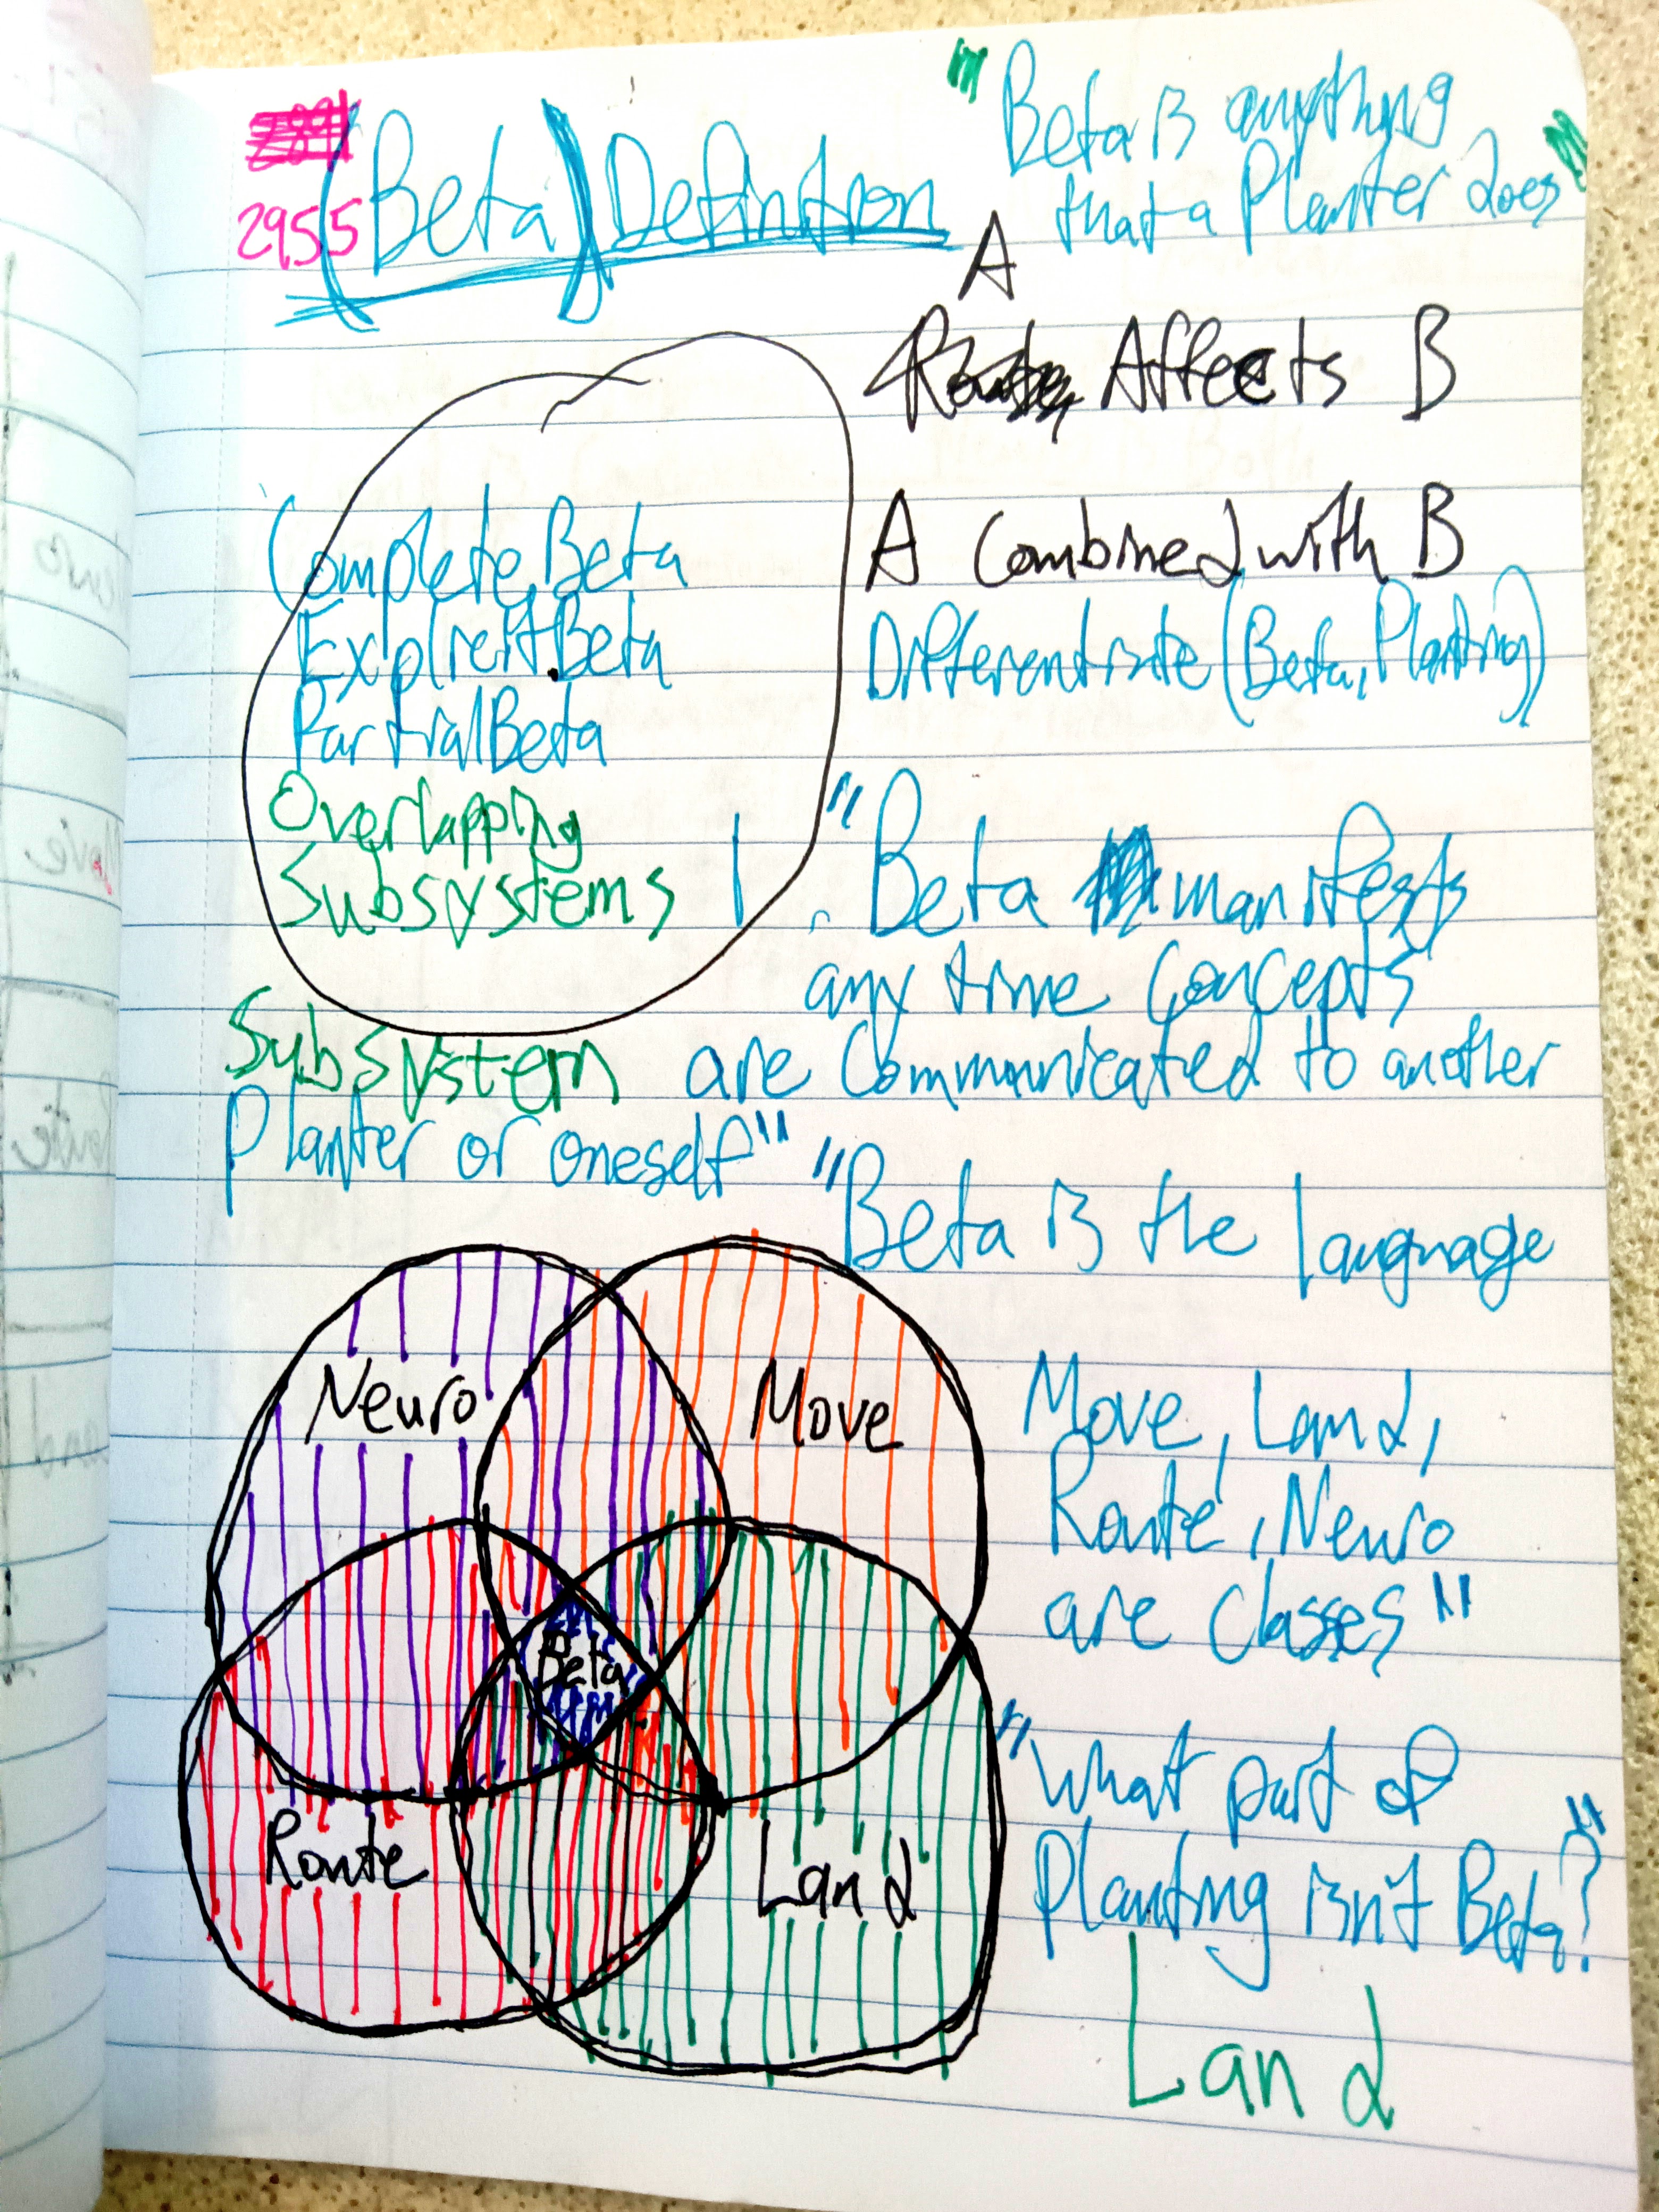 "Beta is anything
that a Planter does"
2955 (Beta) Definition
A
Affects B
A Combined with B
Differentiate (Beta, Planting)
Complete Beta
Explicit Beta
Partial Beta
Overlapping
Subsystems
1. "Beta manifests
any time concepts
are communicated to another
Planter or oneself"
Subsystem
"Beta is the language
Move, Land,
Route, Neuro
are classes"
"What part of
Planting isn't Beta?"
Land
Neuro
Move
Beta
Route
Land